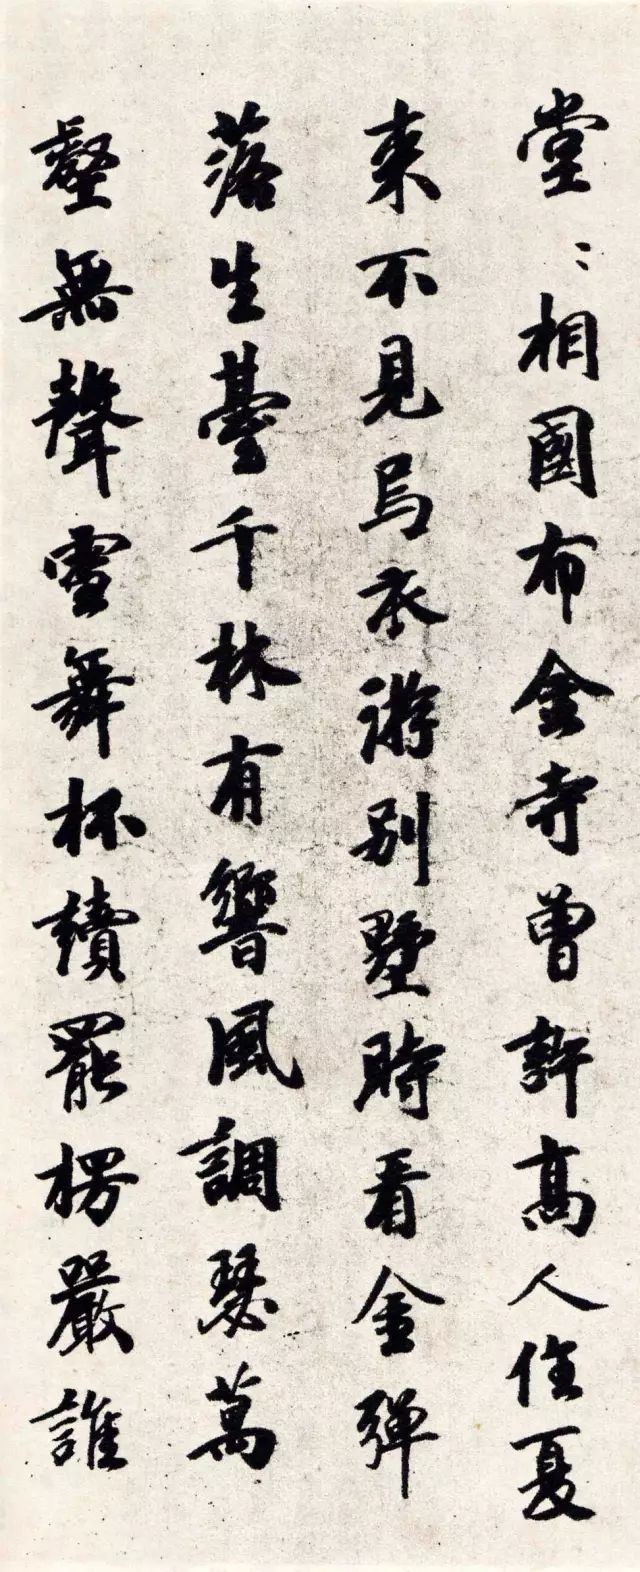 堂〻相國布金寺曾許髙人住夏
来不見烏衣游別墅時看金彈
落生臺千林有響風調瑟萬
壑無聲雪舞杯續罷楞嚴誰